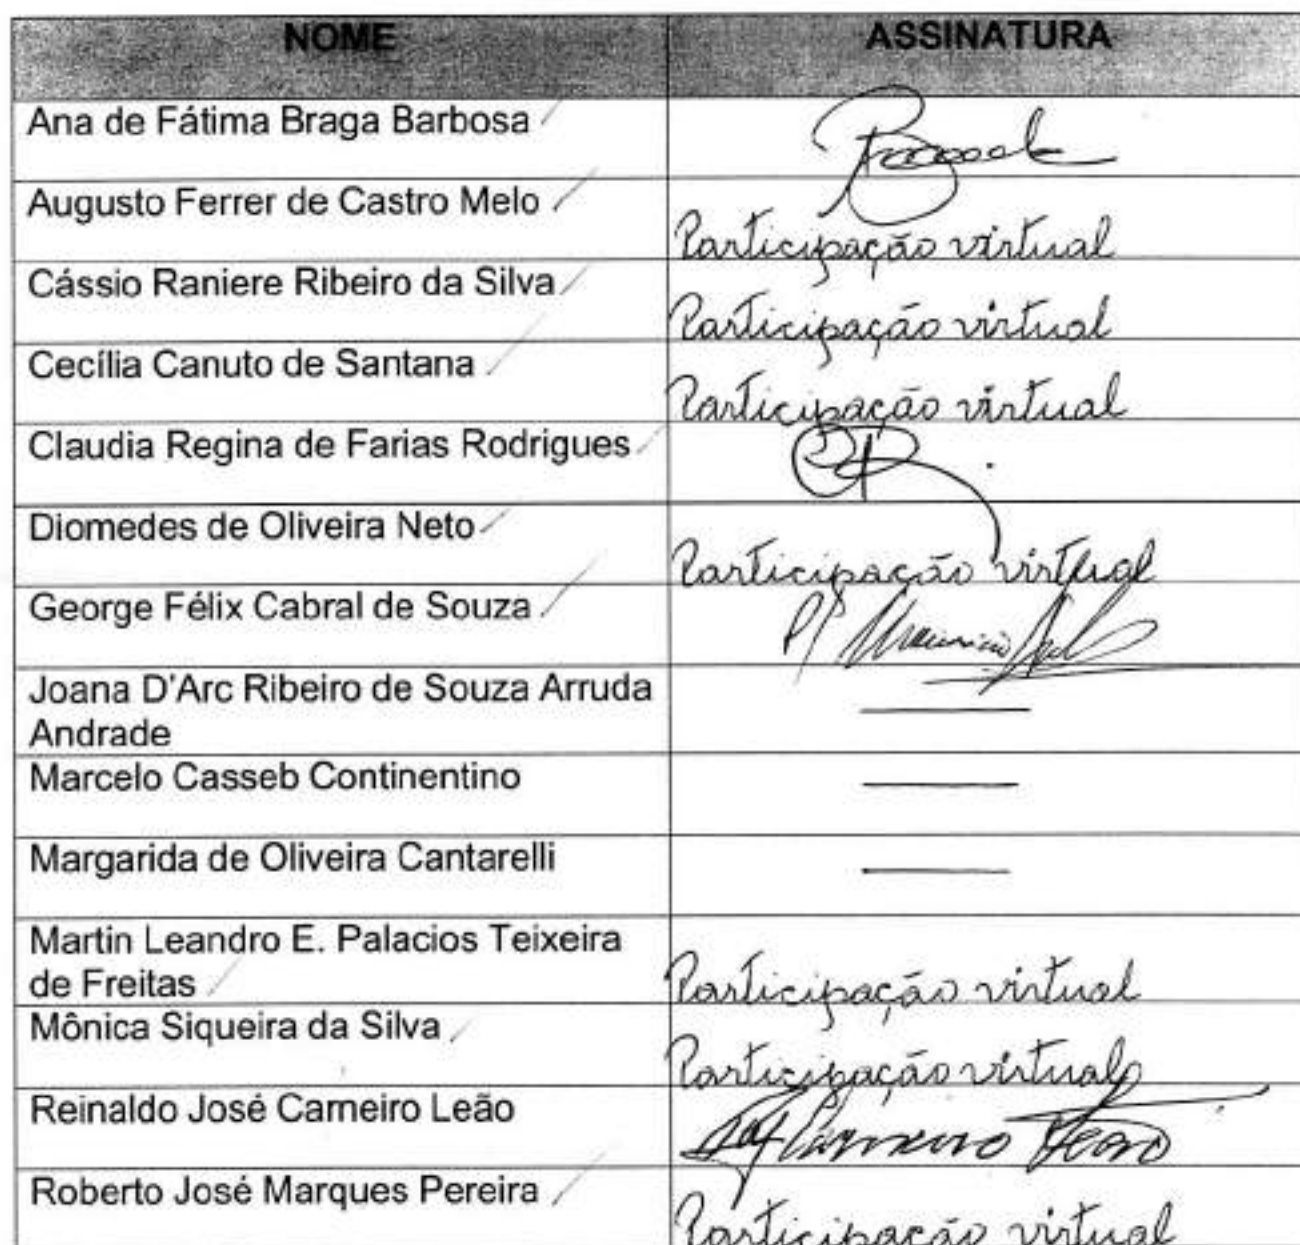 NOME ASSINATURA
Ana de Fátima Braga Barbosa
Augusto Ferrer de Castro Melo Participação virtual
Cássio Raniere Ribeiro da Silva Participação virtual
Cecília Canuto de Santana Participação virtual
Claudia Regina de Farias Rodrigues
Diomedes de Oliveira Neto Participação virtual
George Félix Cabral de Souza P/
Joana D'Arc Ribeiro de Souza Arruda
Andrade
Marcelo Casseb Continentino
Margarida de Oliveira Cantarelli
Martin Leandro E. Palacios Teixeira
de Freitas Participação virtual
Mônica Siqueira da Silva Participação virtual
Reinaldo José Carneiro Leão Carneiro Leão
Roberto José Marques Pereira Participação virtual